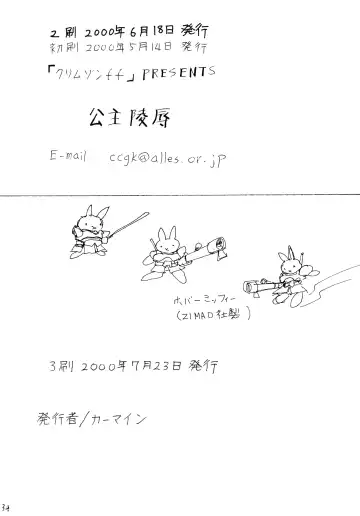 2刷 2000年6月18日 発行
初刷 2000年5月14日 発行
「クリムゾンff」PRESENTS
公主陵辱
E-mail ccgk@alles.or.jp
ホバーミッフィー
(ZIMAD社製)
3刷 2000年7月23日 発行
発行者/カーマイン
34